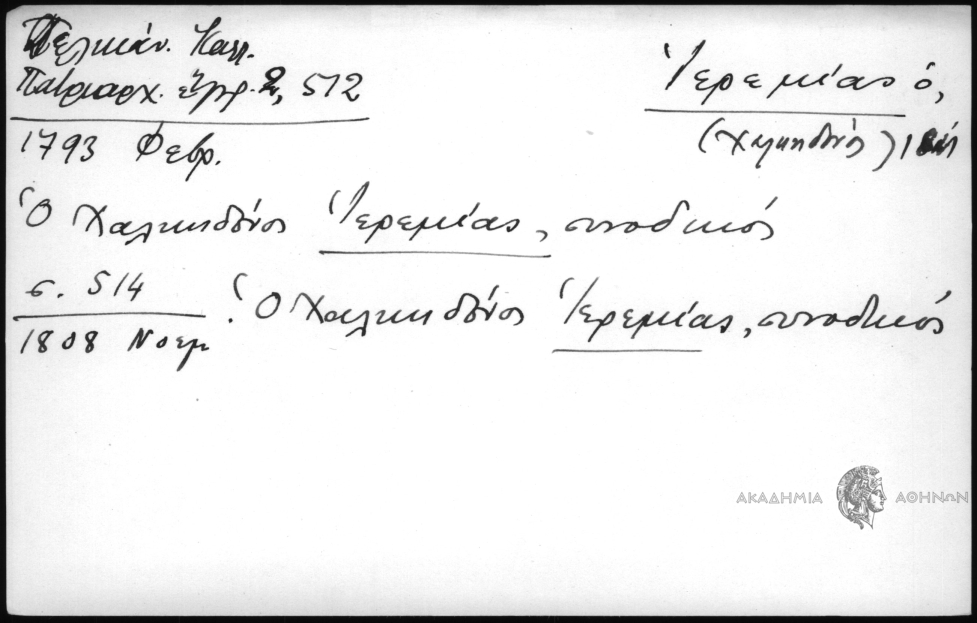 Δελικάν. Καλλ.
Πατριαρχ. έγγρ. 2, 512
Ἱερεμίας ὁ,
1793 Φεβρ.
(Χαλκηδόνος)
Ὁ Χαλκηδόνος Ἱερεμίας, συνοδικός
σ. 514
1808 Νοεμ : Ὁ Χαλκηδόνος Ἱερεμίας, συνοδικός
ΑΚΑΔΗΜΙΑ ΑΘΗΝΩΝ